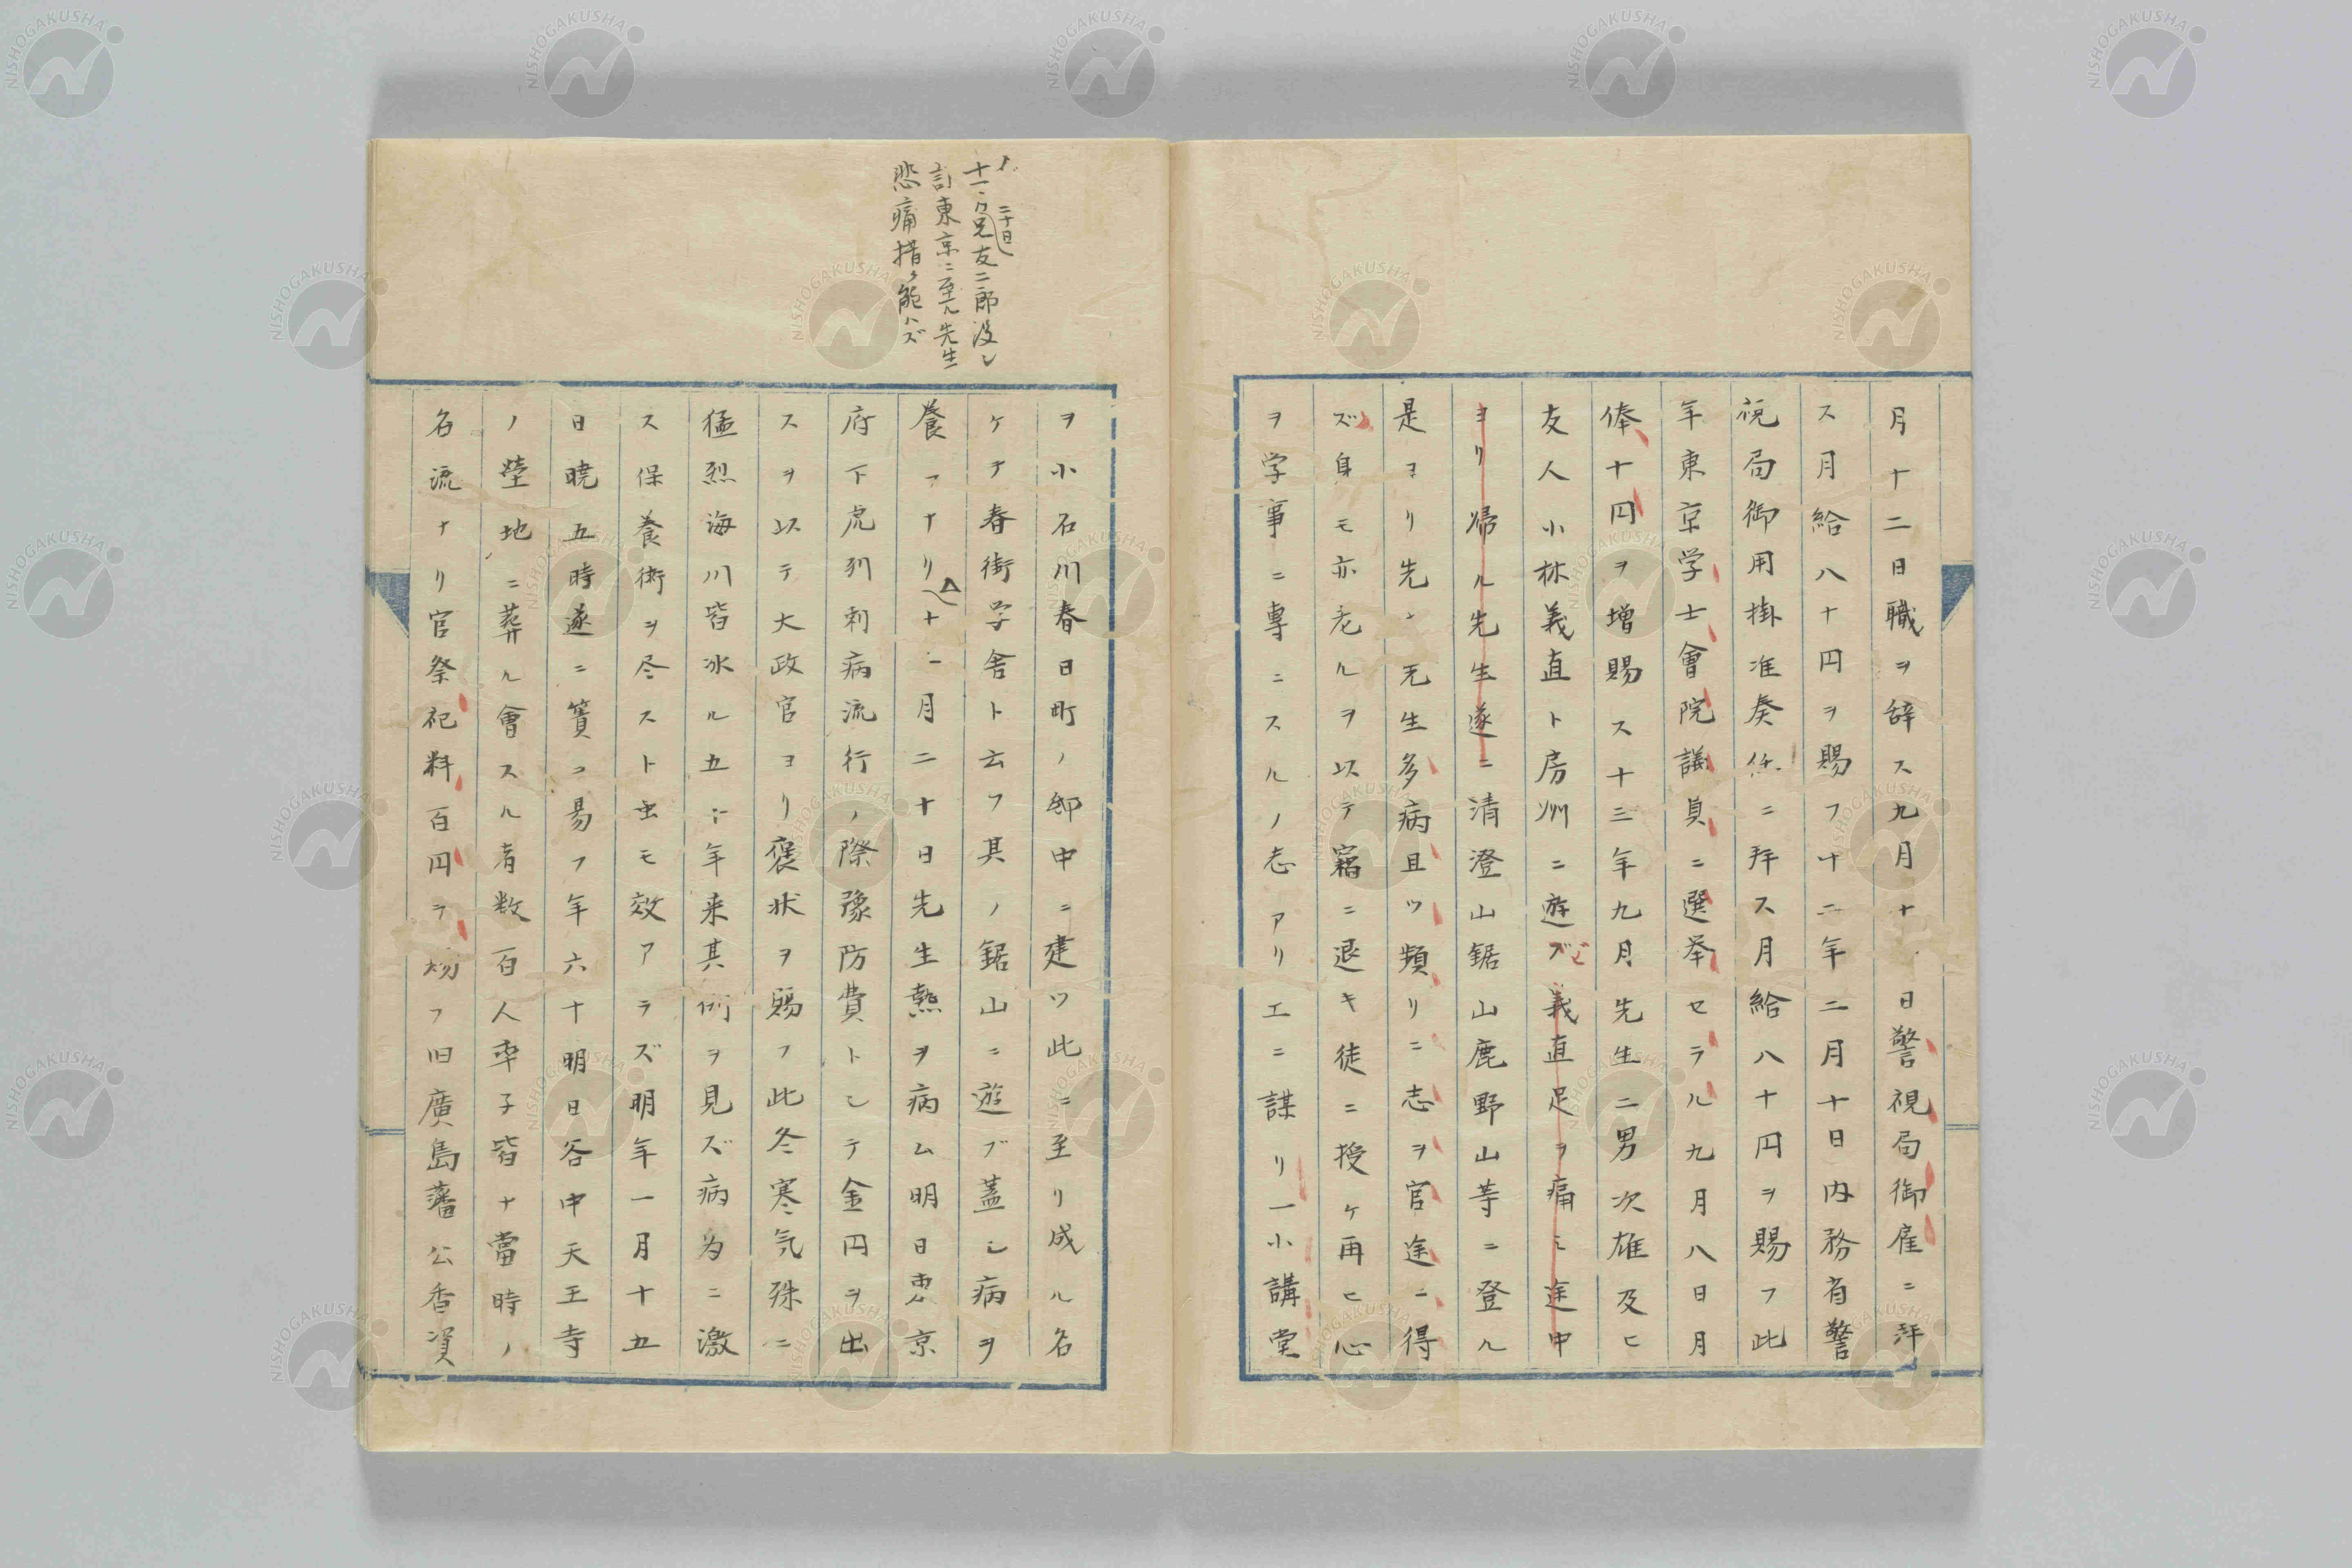 月十二日職ヲ辞ス九月十一日警視局御雇ニ拝
ス月給八十円ヲ賜フ十二年二月十日内務省警
視局御用掛准奏任ニ拝ス月給八十円ヲ賜フ此
年東京学士會院議員ニ選挙セラル九月八日月
俸十円ヲ増賜ス十三年九月先生二男次雄及ヒ
友人小林義直ト房州ニ遊ブ義直足ヲ痛ミ途中
ヨリ帰ル先生遂ニ清澄山鋸山鹿野山等ニ登ル
是ヨリ先キ先生多病且ツ頻リニ志ヲ官途ニ得
ズ身モ亦老ルヲ以テ竊ニ退キ徒ニ授ケ再ヒ心
ヲ学事ニ専ニスルノ志アリ工ニ謀リ一小講堂
二十日
十一月兄友二郎没シ
訃東京ニ至ル先生
悲痛措ク能ハズ
ヲ小石川春日町ノ邸中ニ建ツ此ニ至リ成ル名
ケテ春街学舎ト云フ其ノ鋸山ニ遊ブ蓋シ病ヲ
養フナリ十一月二十日先生熱ヲ病ム明日東京
府下虎列剌病流行ノ際豫防費トシテ金円ヲ出
スヲ以テ大政官ヨリ褒状ヲ賜フ此冬寒気殊ニ
猛烈海川皆氷ル五十年来其例ヲ見ズ病為ニ激
ス保養術ヲ尽スト虫モ效アラズ明年一月十五
日暁五時遂ニ簀ヲ易フ年六十明日谷中天王寺
ノ塋地ニ葬ル會スル者数百人率子皆ナ當時ノ
名流ナリ官祭祀料百円ヲ賜フ旧廣島藩公香資
NISHOGAKUSHA